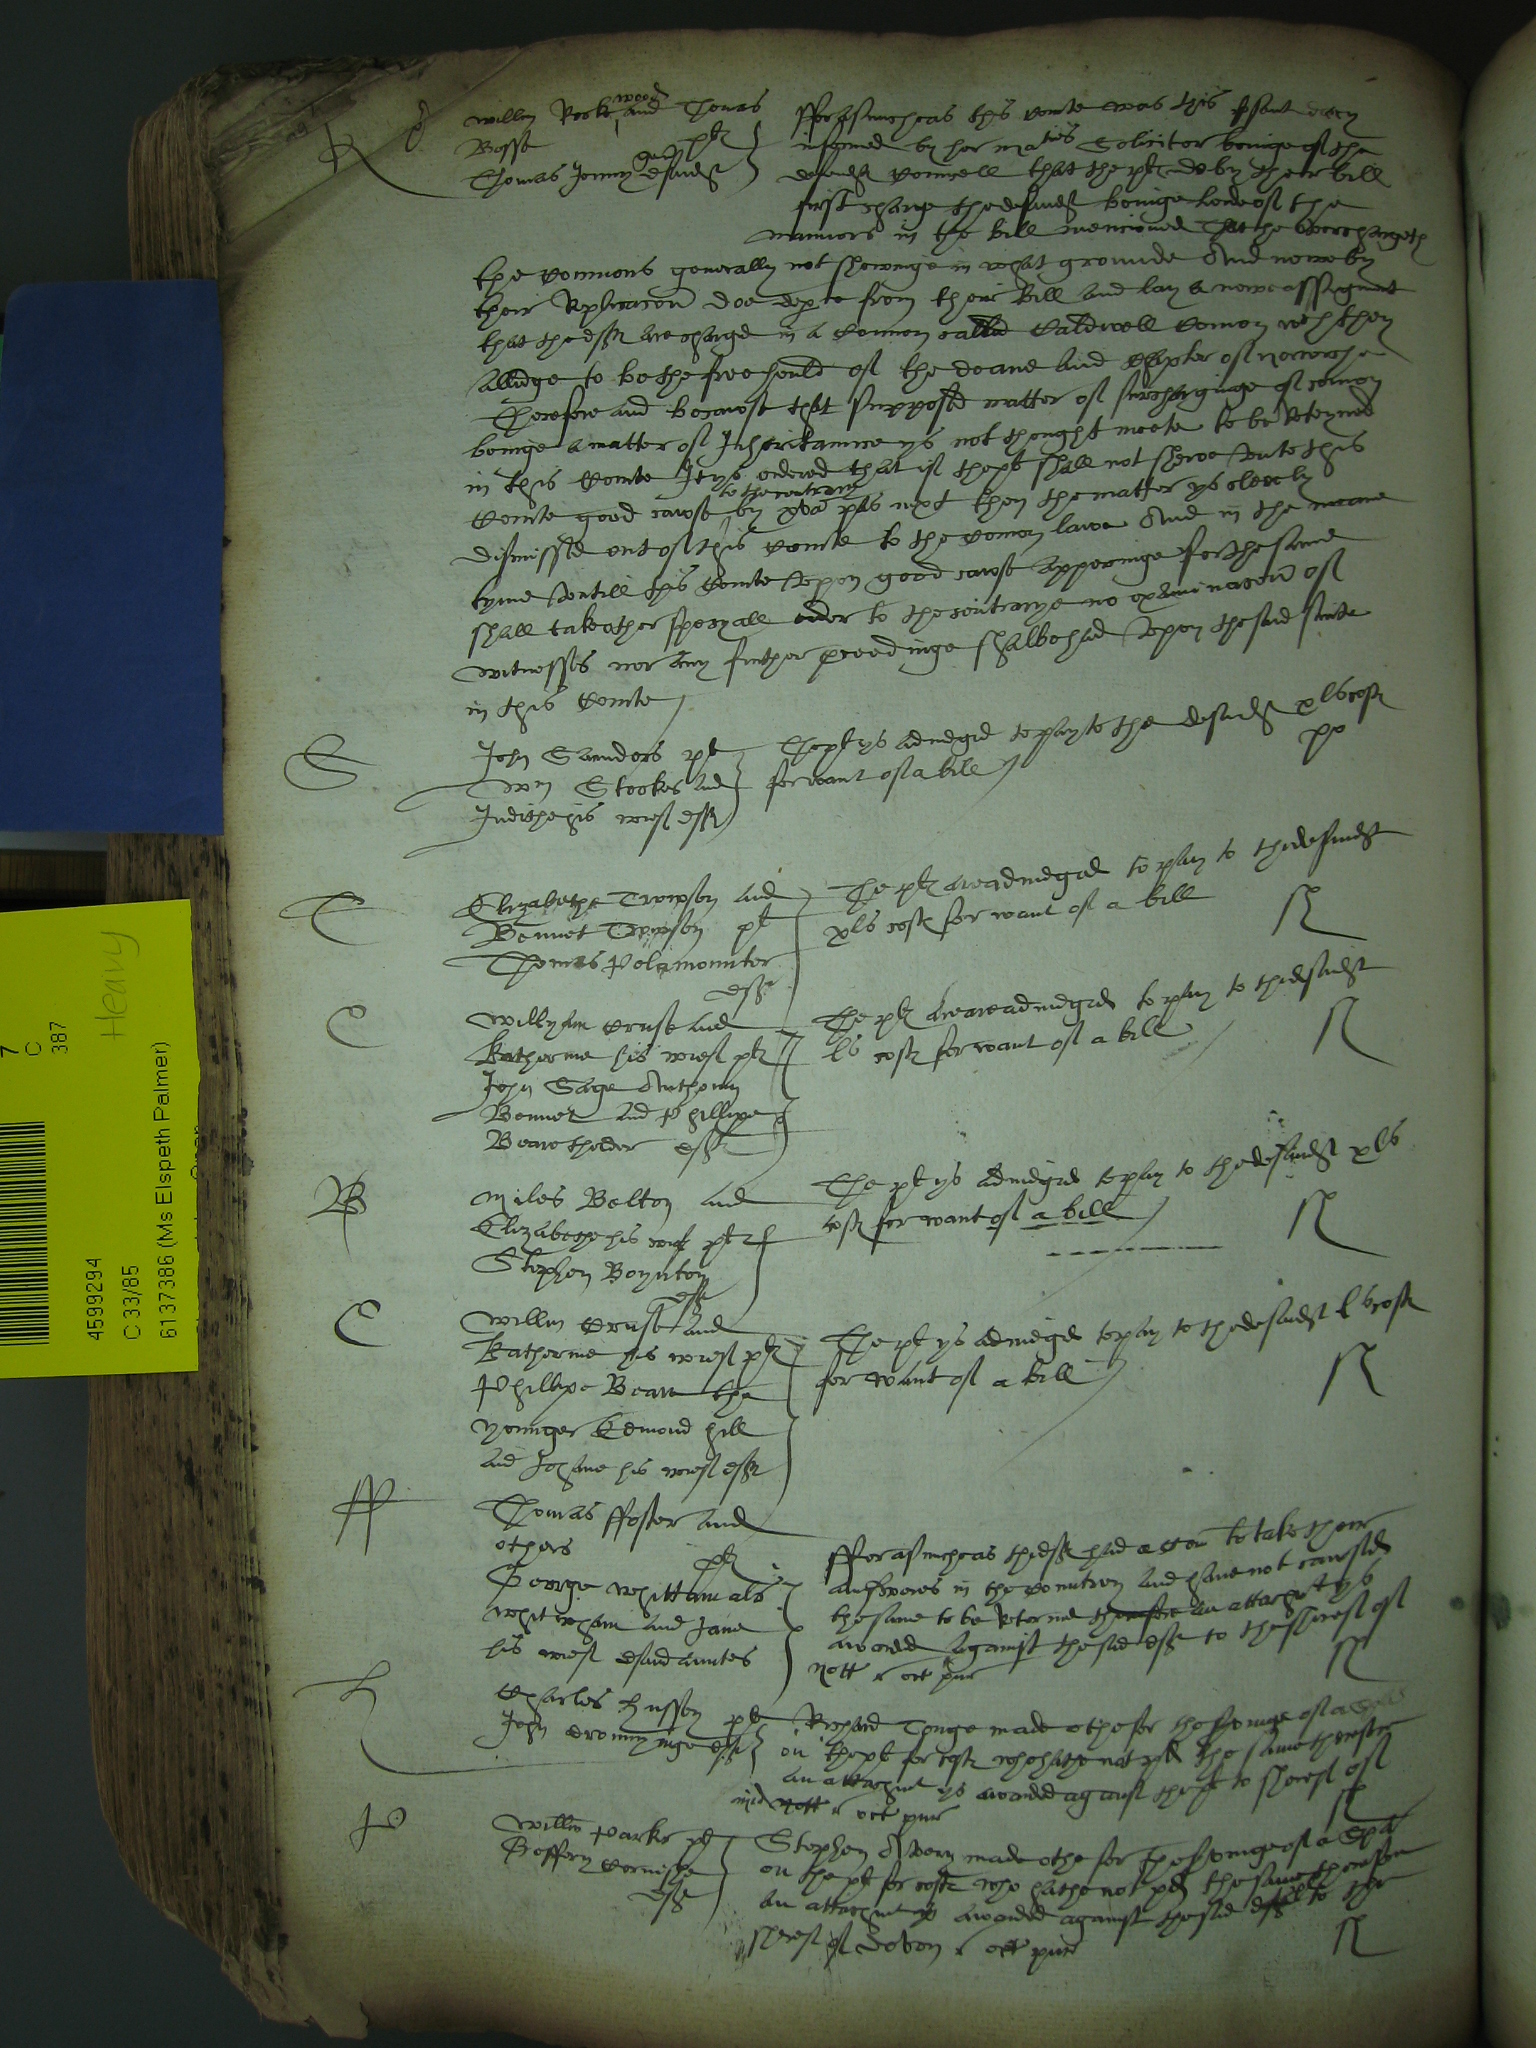 R
willm Rookwood and Thomas
Bosse pltes
Thomas Jenny gent defendt
fforasmuchas this Courte was this present daye
informed by her maties Solicitor beinge of the
defendtes Counsell that the pltes do by their bill
first charge the defendt beinge lorde of the
mannors in the bill mencioned That he overchargeth
the Commons generally not shewinge in what grounde And nowe by
their Replicacon doe depte from their bill and lay a newe assignemt
that the deftes are charged in a Common called Caldwell Comon wch they
alledge to be the freehould of the deane and Chapter of Norwiche
Therefore and because that supposed matter of surcharginge of comon
beinge a matter of Inheritaunce ys not thought meete to be Reteyned
in this Courte It ys ordered that if the plt shall not shewe unto this
Courte good cause to the contrary by next then the matter ys clerely
dismissed out of this Courte to the Comon lawe And in the meane
tyme untill this Courte upon good cause apperinge for the same
shall take other specyall order to the contrarye no examinacon of
witnesses nor any further proceedinge shalbe had upon the said suite
in this Courte
S
John Saunders plt
Wm Stookes and
Judithe his wief deftes
The plt ys adiudged to pay to the defendtes xls costes
for want of a bill
T
Elizabethe Tompson and
Bennet Tompson plt
Thomas Polamounter
deft
The pltes are adiudged to pay to the defendt
xls costes for want of a bill
C
Willyam Cruse and
Katherine his wief pltes
John Sage Anthony
Bennet and Phillipe
Beare thelder deftes
The pltes are adiudged to pay to the defendtes
ls costes for want of a bill
B
Miles Belton and
Elizabethe his wief pltes
Stephen Boynton
deft
The plt ys adiudged to pay to the defendt xls
costes for want of a bill
C
Willm Cruse and
Katherine his wief pltes
Phillipe Beare the
younger Edmond Hill
and Johane his wief deftes
The plt ys adiudged to pay to the defendtes ls costes
for want of a bill
ff
Thomas ffoster and
others pltes
George Whittam als
Whitwham and Jane
his wief defendauntes
fforasmuchas the deftes had a Com to take their
answeres in the Countrey and have not caused
the same to be Retorned therefore an attachmt ys
awarded against the said deftes to the sherief of
Nott r oct pur
H
Charles Hussey plt
John Dromynge deft
Richard Tonge made othe for the servinge of a
on the plt for costes who hathe not pd the same therefore
an attachmt ys awarded against the plt to sherief of
Nott r oct pur
P
Willm Parker plt
Geffery Cornishe
deft
Stephen Avery made othe for the servinge of a Spa
on the plt for costes who hathe not pd the same therefore
an attachmt ys awarded against the said to the
sherief of Devon r oct pur
7
C
387
Heavy
4599294
C 33/85
6137386 (Ms Elspeth Palmer)